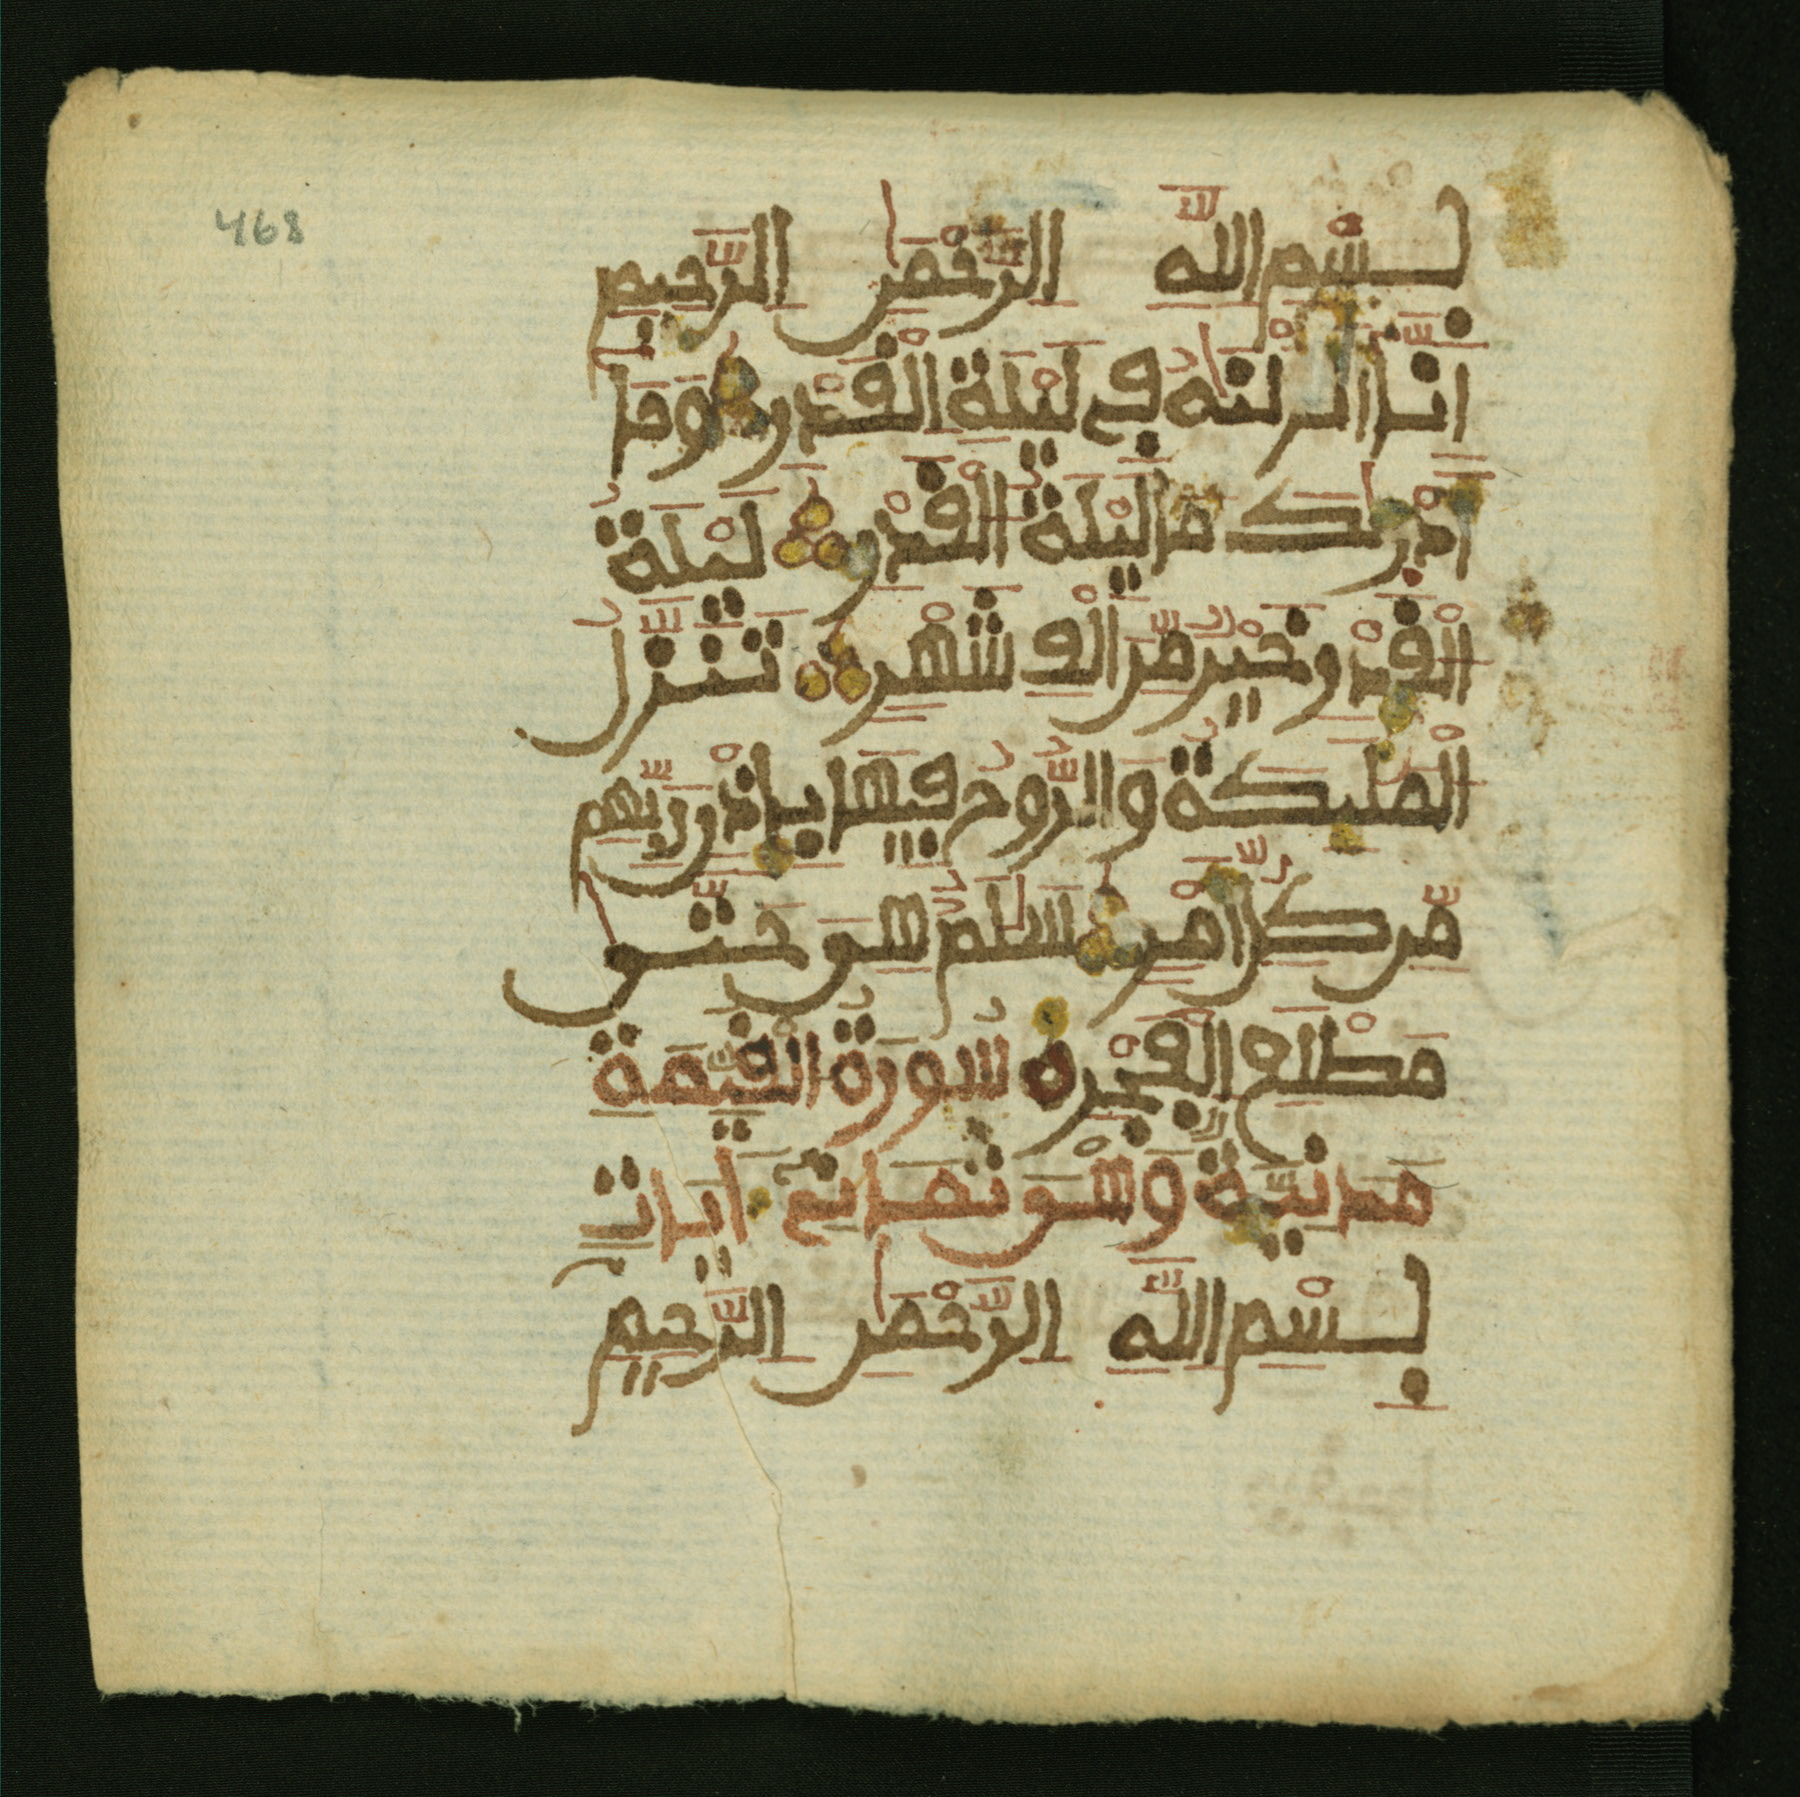 468
بِسْمِ اللَّهِ الرَّحْمَٰنِ الرَّحِيمِ
إِنَّا أَنزَلْنَٰهُ فِي لَيْلَةِ الْقَدْرِ وَمَا
أَدْرَٰكَ مَا لَيْلَةُ الْقَدْرِ لَيْلَةُ
الْقَدْرِ خَيْرٌ مِّنْ أَلْفِ شَهْرٍ تَنَزَّلُ
الْمَلَٰئِكَةُ وَالرُّوحُ فِيهَا بِإِذْنِ رَبِّهِم
مِّن كُلِّ أَمْرٍ سَلَٰمٌ هِيَ حَتَّىٰ
مَطْلَعِ الْفَجْرِ سُورَةُ الْقَيِّمَةِ
مَدَنِيَّةٌ وَهِيَ ثَمَانِيَ ءَايَاتٍ
بِسْمِ اللَّهِ الرَّحْمَٰنِ الرَّحِيمِ